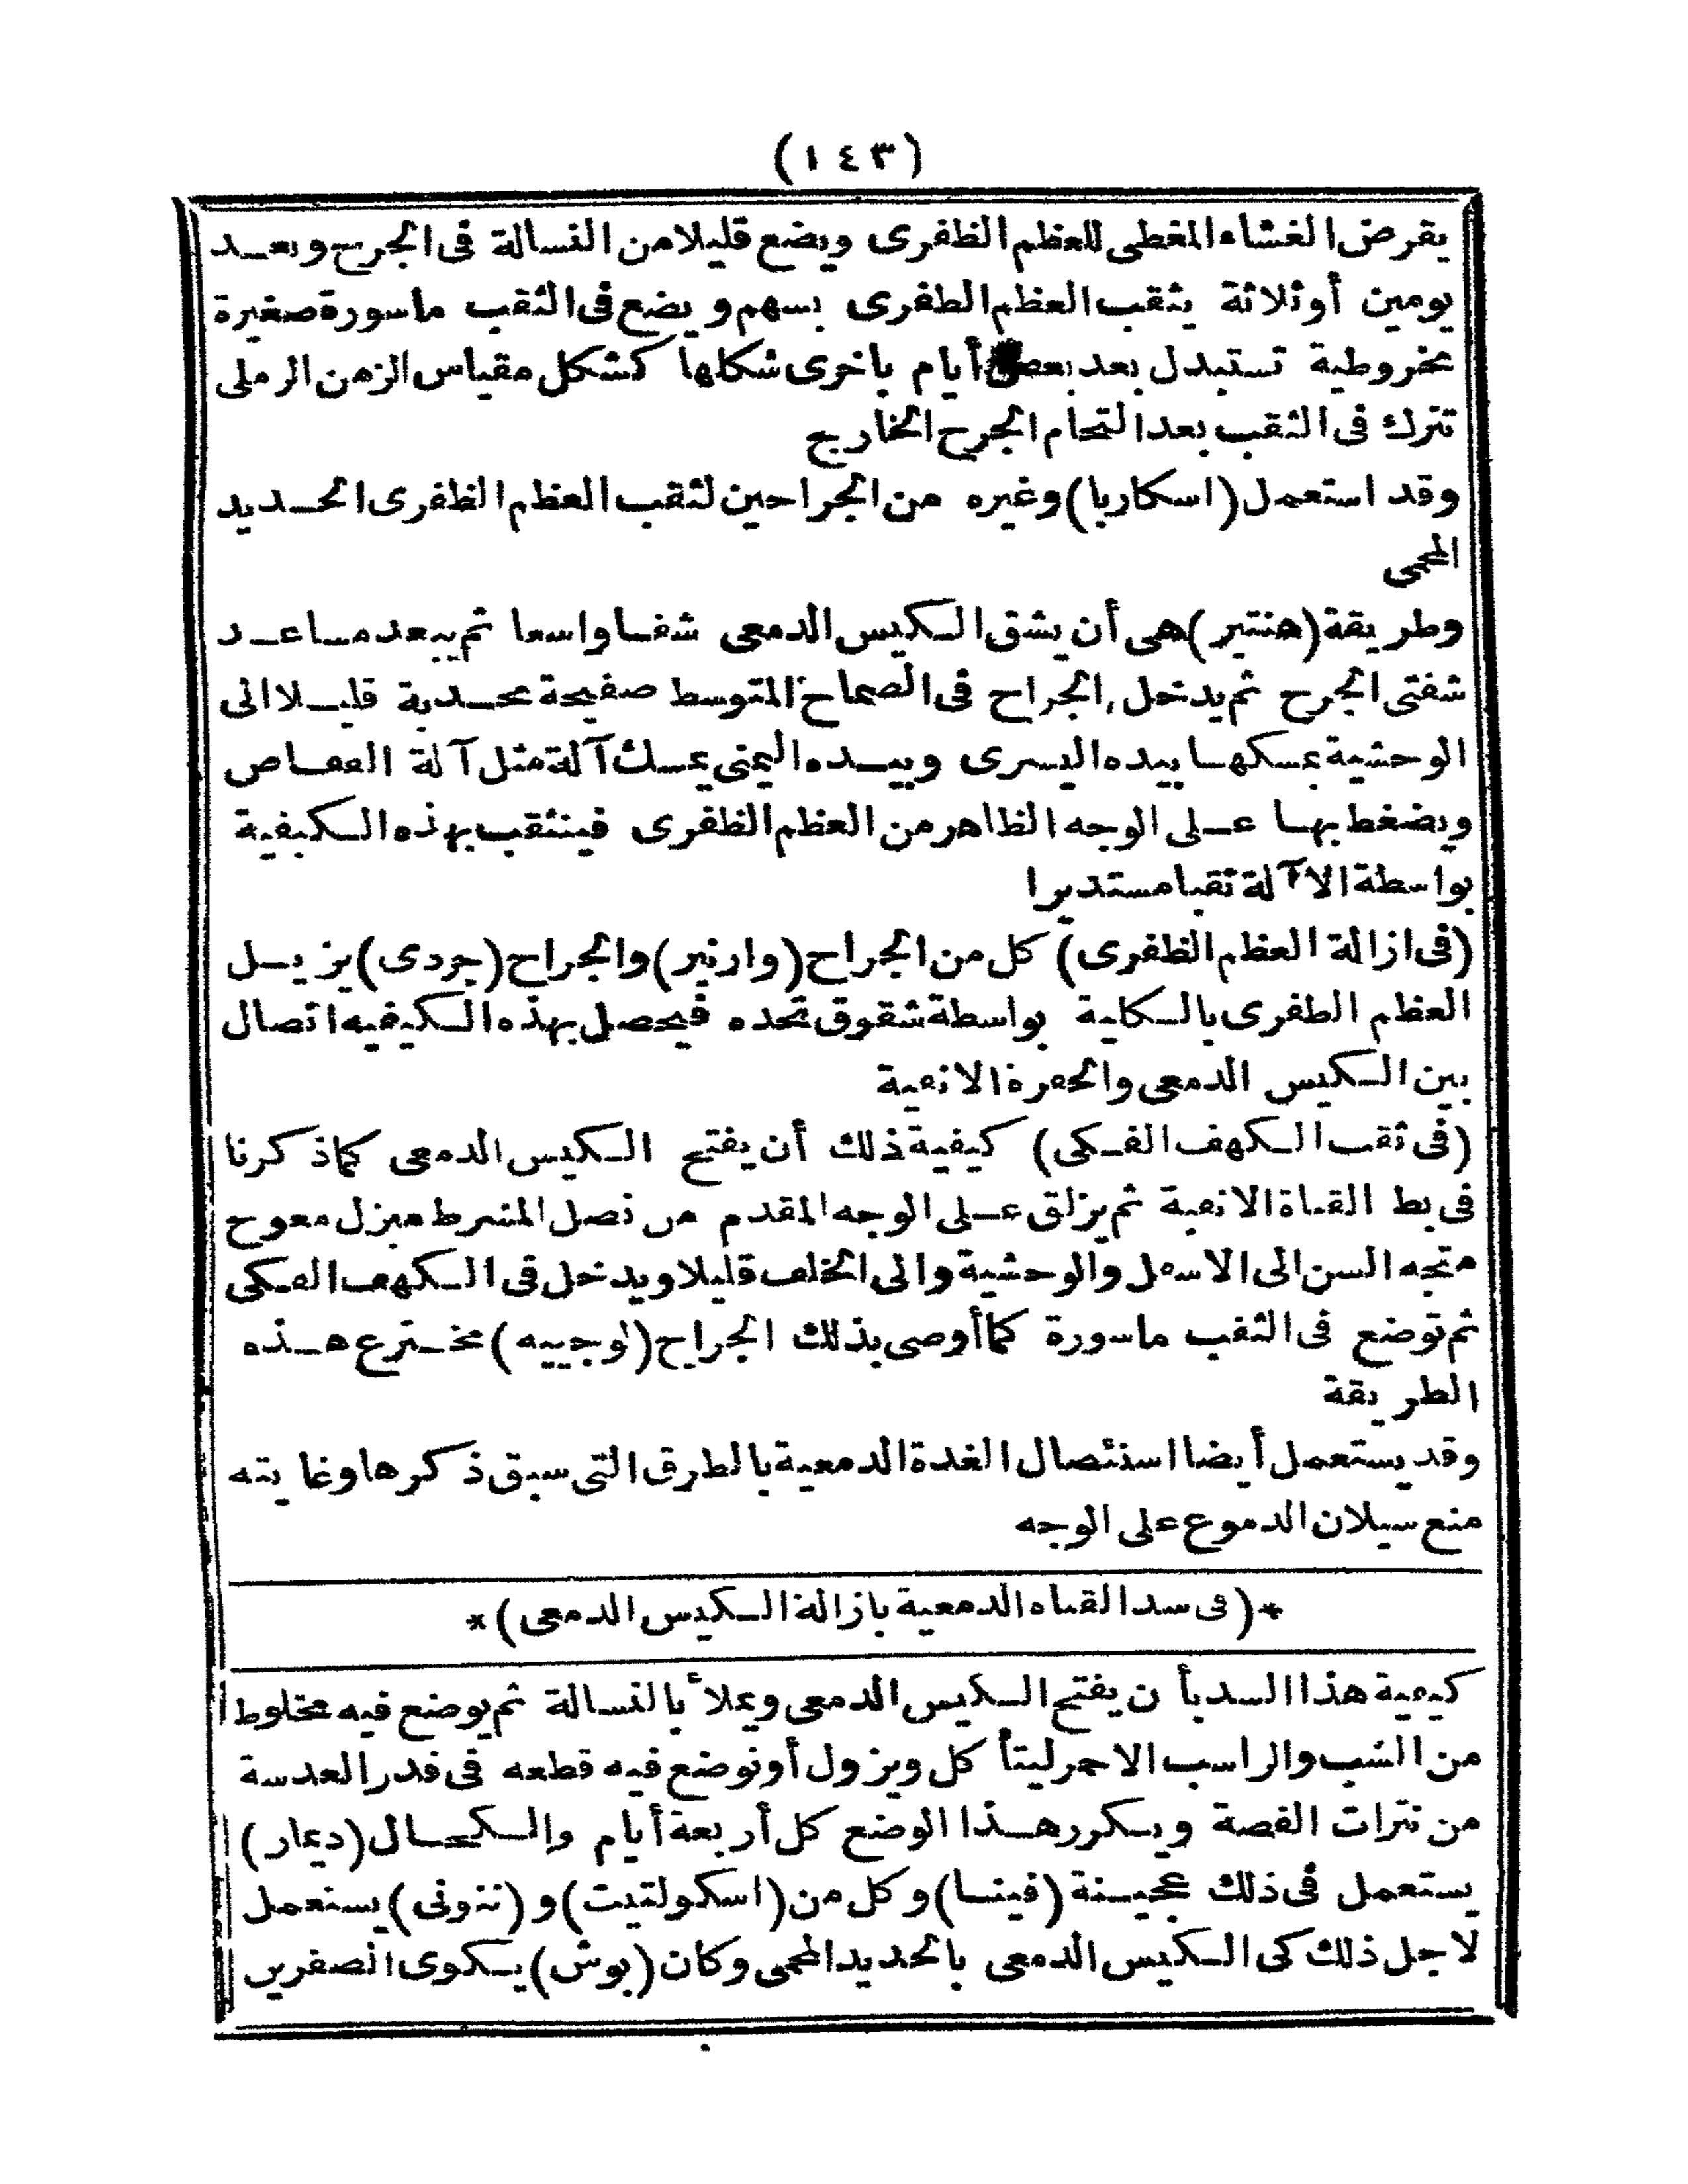 (١٤٣)
يقرض الغشاء المغطى للعظم الظفرى ويضع قليلا من النسالة فى الجرح وبعد
يومين أو ثلاثة يثقب العظم الظفرى بسهم ويضع فى الثقب ماسورة صغيرة
مخروطية تستبدل بعد بعض أيام باخرى شكلها كشكل مقياس الزمن الرملى
تترك فى الثقب بعد التحام الجرح الخارج
وقد استعمل (اسكاربا) وغيره من الجراحين لثقب العظم الظفرى الحديد
المحمى
وطريقة (هنتير) هى أن يشق الكيس الدمعى شقا واسعا ثم يبعد مساعد
شفتى الجرح ثم يدخل الجراح فى الصماخ المتوسط صفيحة محدبة قليلا الى
الوحشية يمسكها بيده اليسرى وبيده اليمنى يمسك آلة مثل آلة القصاص
ويضغط بها على الوجه الظاهر من العظم الظفرى فينثقب بهذه الكيفية
بواسطة الآلة ثقبا مستديرا
(فى ازالة العظم الظفرى) كل من الجراح (وارنير) والجراح (جردى) يزيل
العظم الظفرى بالكلية بواسطة شقوق تحده فيحصل بهذه الكيفيه اتصال
بين الكيس الدمعى والحفرة الانفية
(فى ثقب الكهف الفكى) كيفية ذلك أن يفتح الكيس الدمعى كما ذكرنا
فى بط القناة الانفية ثم يزلق على الوجه المقدم من نصل المشرط مبزل معوج
متجه السن الى الاسفل والوحشية والى الخلف قليلا ويدخل فى الكهف الفكى
ثم توضع فى الثقب ماسورة كما أوصى بذلك الجراح (لوجييه) مخترع هذه
الطريقة
وقد يستعمل أيضا استئصال الغدة الدمعية بالطرق التى سبق ذكرها وغايته
منع سيلان الدموع على الوجه
*(فى سد القناه الدمعية بازالة الكيس الدمعى)*
كيفية هذا السد بأن يفتح الكيس الدمعى ويملأ بالنسالة ثم يوضع فيه مخلوط
من الشب والراسب الاحمر ليتأكل ويزول أو توضع فيه قطعه فى قدر العدسة
من نترات الفضة ويكرر هذا الوضع كل أربعة أيام والكحال (ديمار)
يستعمل فى ذلك عجينة (فينا) وكل من (اسكولتيت) و (نزونى) يستعمل
لاجل ذلك كى الكيس الدمعى بالحديد المحمى وكان (بوش) يكوى الصفرين